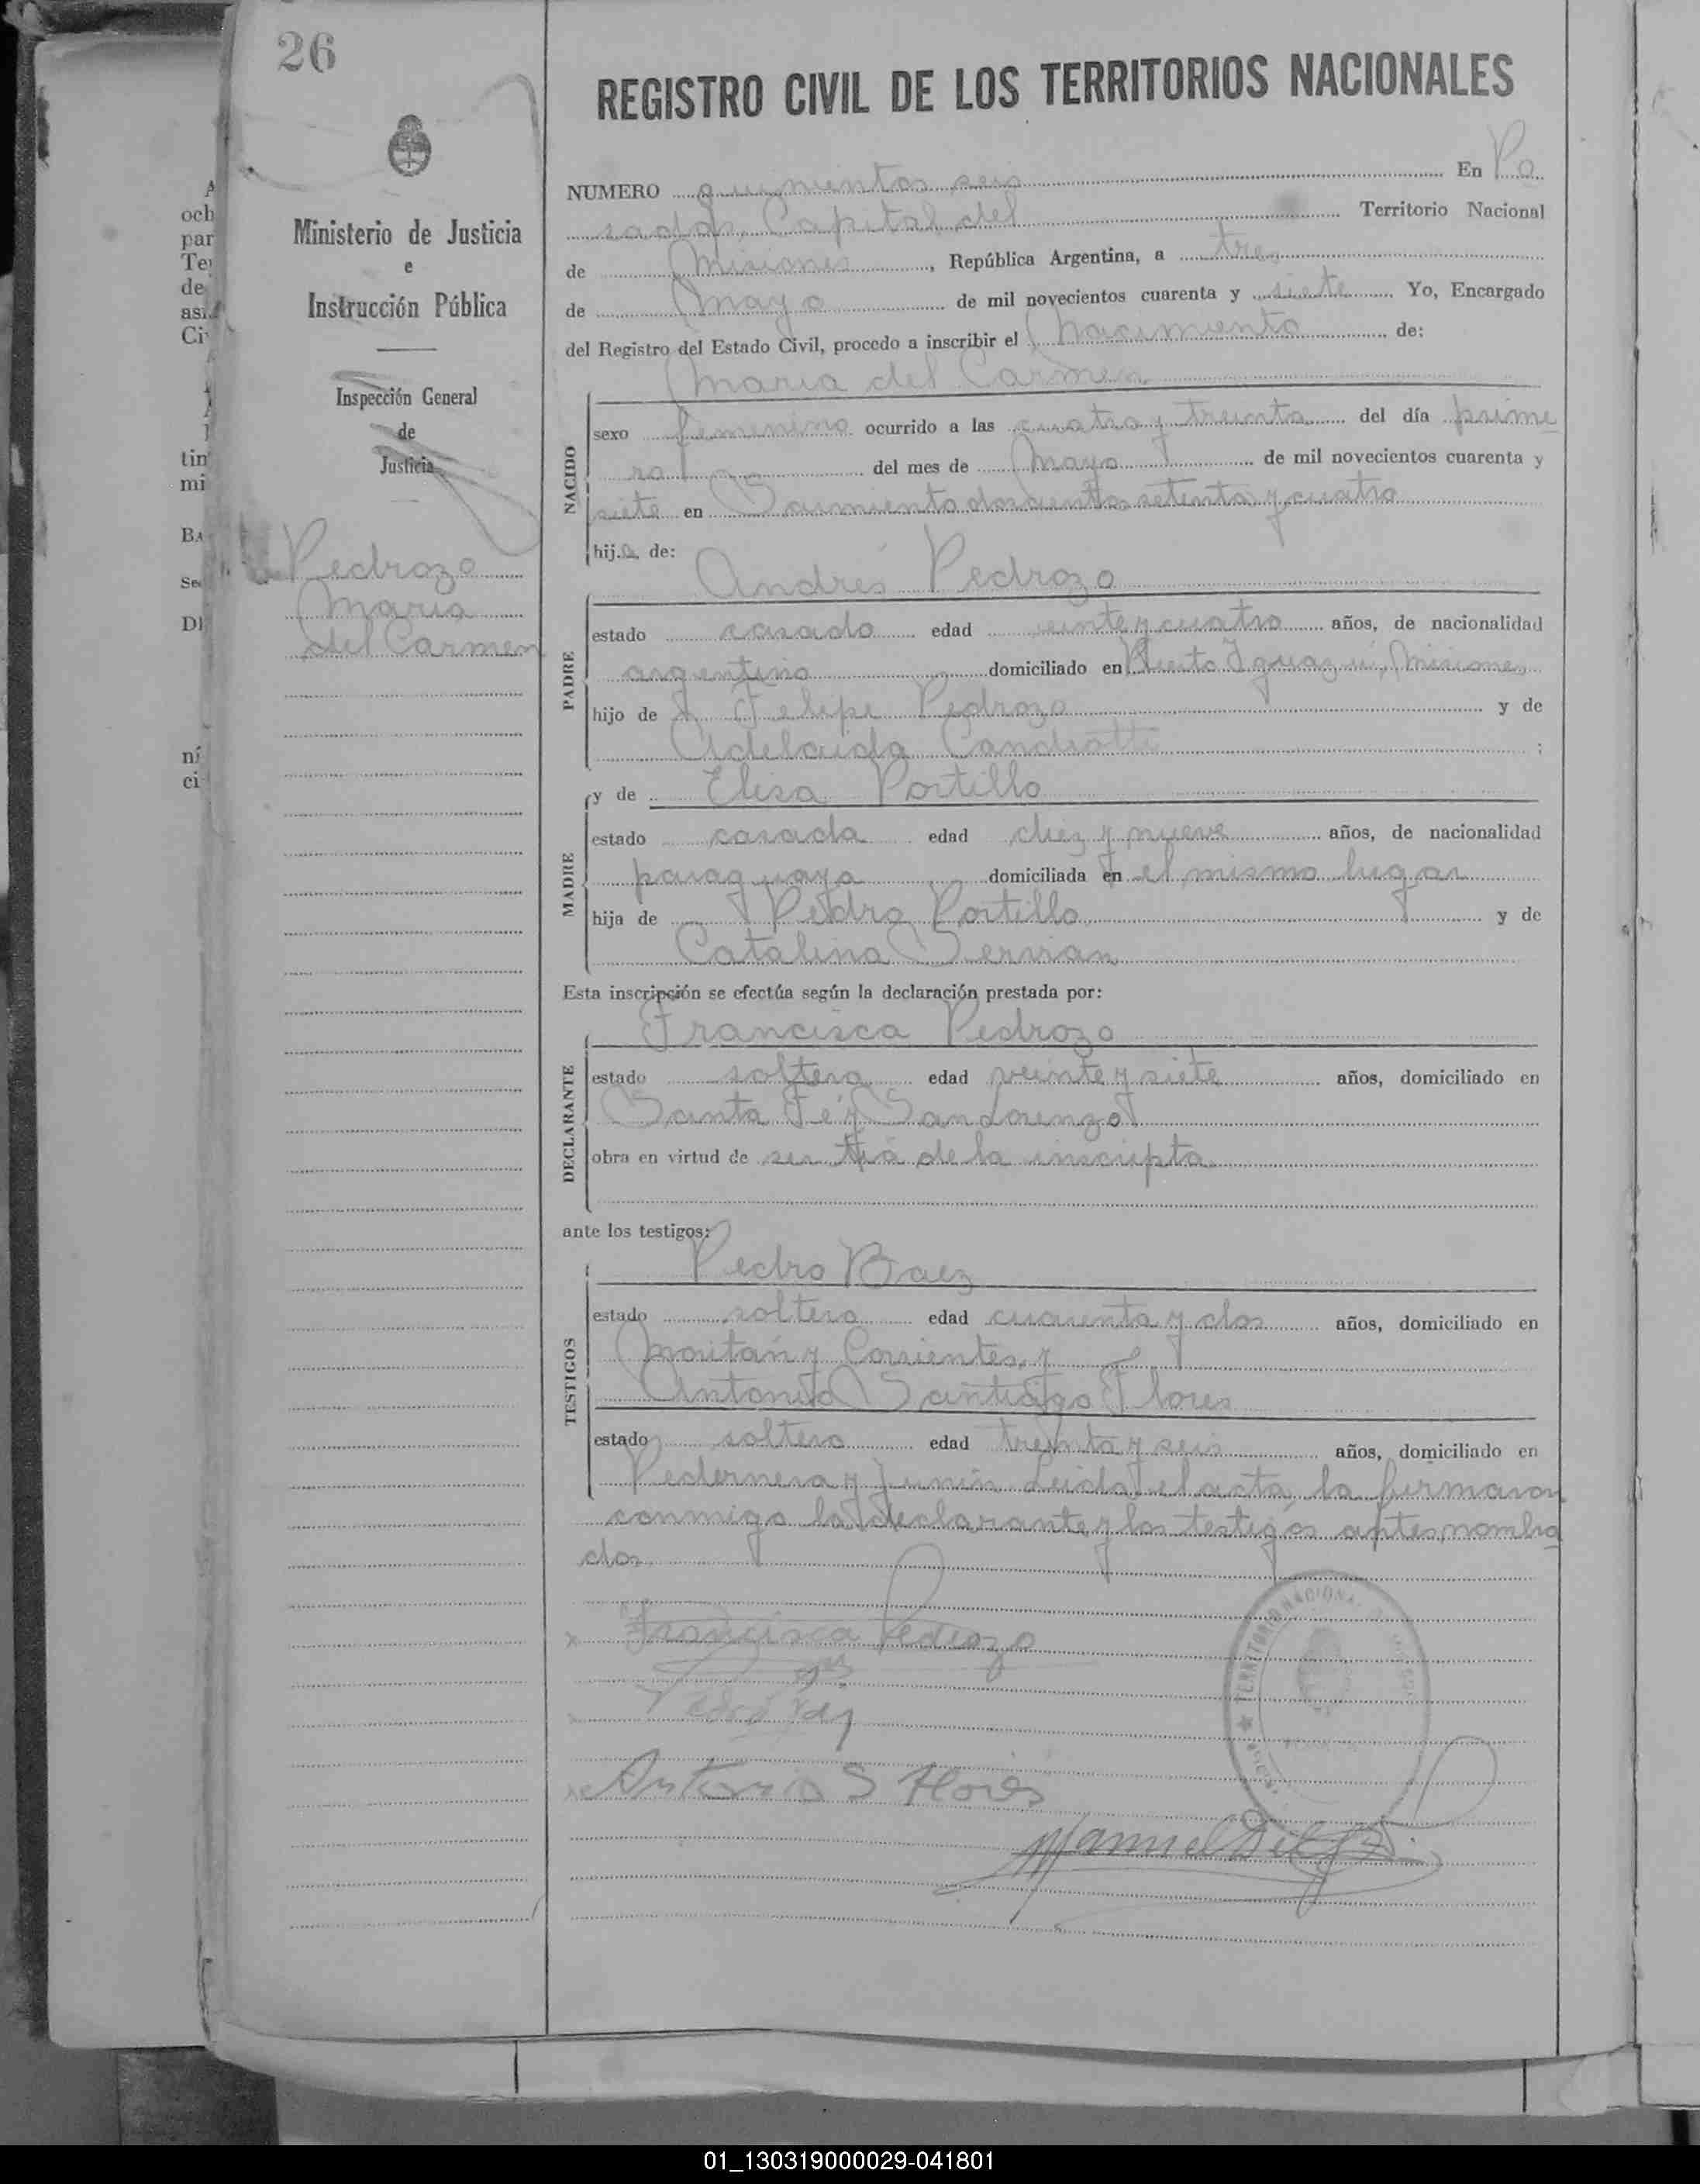 26
REGISTRO CIVIL DE LOS TERRITORIOS NACIONALES
Ministerio de Justicia
e
Instrucción Pública
Inspección General
de
Justicia
Pedrozo
Maria
del Carmen
NUMERO quinientos seis En Po
sadas, Capital del Territorio Nacional
de Misiones, República Argentina, a tres
de Mayo de mil novecientos cuarenta y siete Yo, Encargado
del Registro del Estado Civil, procedo a inscribir el Nacimiento de:
Maria del Carmen
NACIDO
sexo femenino ocurrido a las cuatro y treinta del día prime
ro del mes de Mayo de mil novecientos cuarenta y
siete en Sarmiento doscientos setenta y cuatro
hija de:
Andrés Pedrozo
PADRE
estado casado edad veinte y cuatro años, de nacionalidad
argentino domiciliado en Puerto Iguazú, Misiones
hijo de Felipe Pedrozo y de
Adelaida ;
y de Elisa Portillo
MADRE
estado casada edad diez y nueve años, de nacionalidad
paraguaya domiciliada en el mismo lugar
hija de Pedro Portillo y de
Catalina Servian
Esta inscripción se efectúa según la declaración prestada por:
Francisca Pedrozo
DECLARANTE
estado soltera edad veinte y siete años, domiciliado en
Santa Fé y San Lorenzo
obra en virtud de ser tía de la inscripta
ante los testigos:
Pedro Baez
TESTIGOS
estado soltero edad cuarenta y dos años, domiciliado en
Moritán y Corrientes, y
Antonio Santiago Flores
estado soltero edad treinta y seis años, domiciliado en
Pedernera y Junín Leida el acta, la firmaron
conmigo la declarante y los testigos antes nombra
dos.
Francisca Pedrozo
Antonio S Flores
Manuel
TERRITORIO NACIONAL
01_130319000029-041801